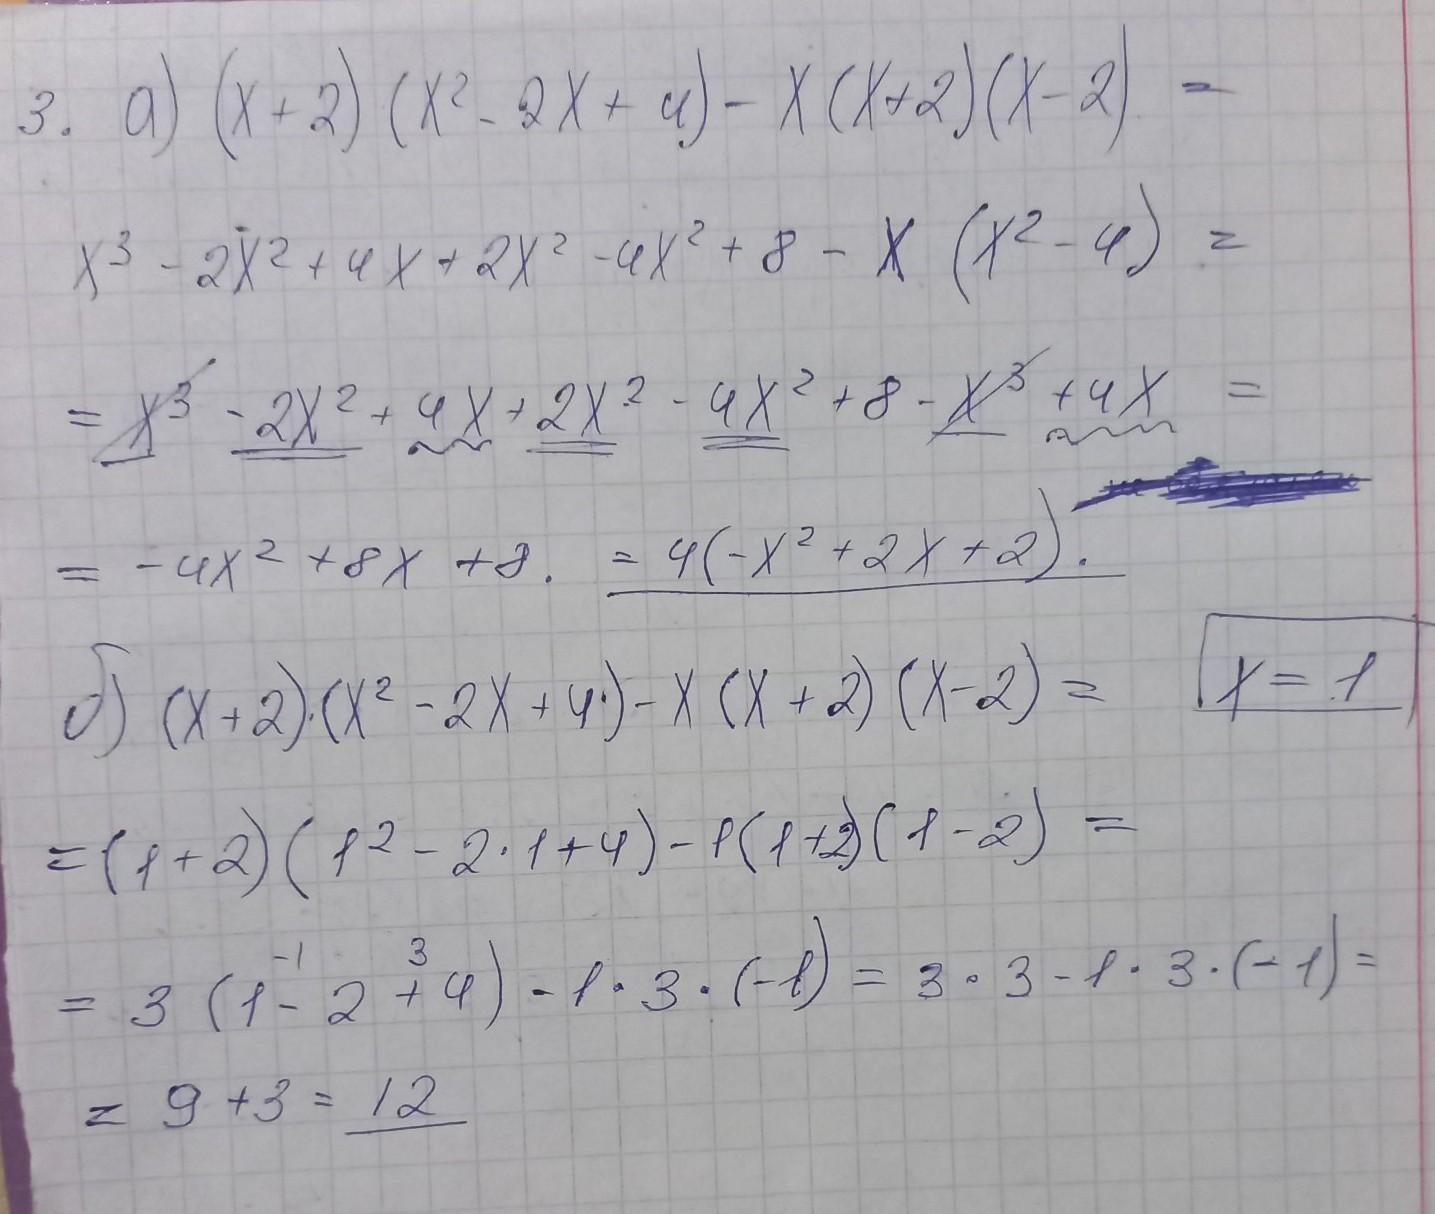 3. а) (x+2)(x²-2x+4)-x(x+2)(x-2) =
x³-2x²+4x+2x²-4x²+8-x(x²-4) =
= x³-2x²+4x+2x²-4x²+8-x³+4x =
= -4x²+8x+8. = 4(-x²+2x+2).
б) (x+2)·(x²-2x+4)-x(x+2)(x-2) = x = 1
= (1+2)(1²-2·1+4)-1(1+2)(1-2) =
-1 3
= 3(1-2+4)-1·3·(-1) = 3·3-1·3·(-1) =
= 9+3 = 12